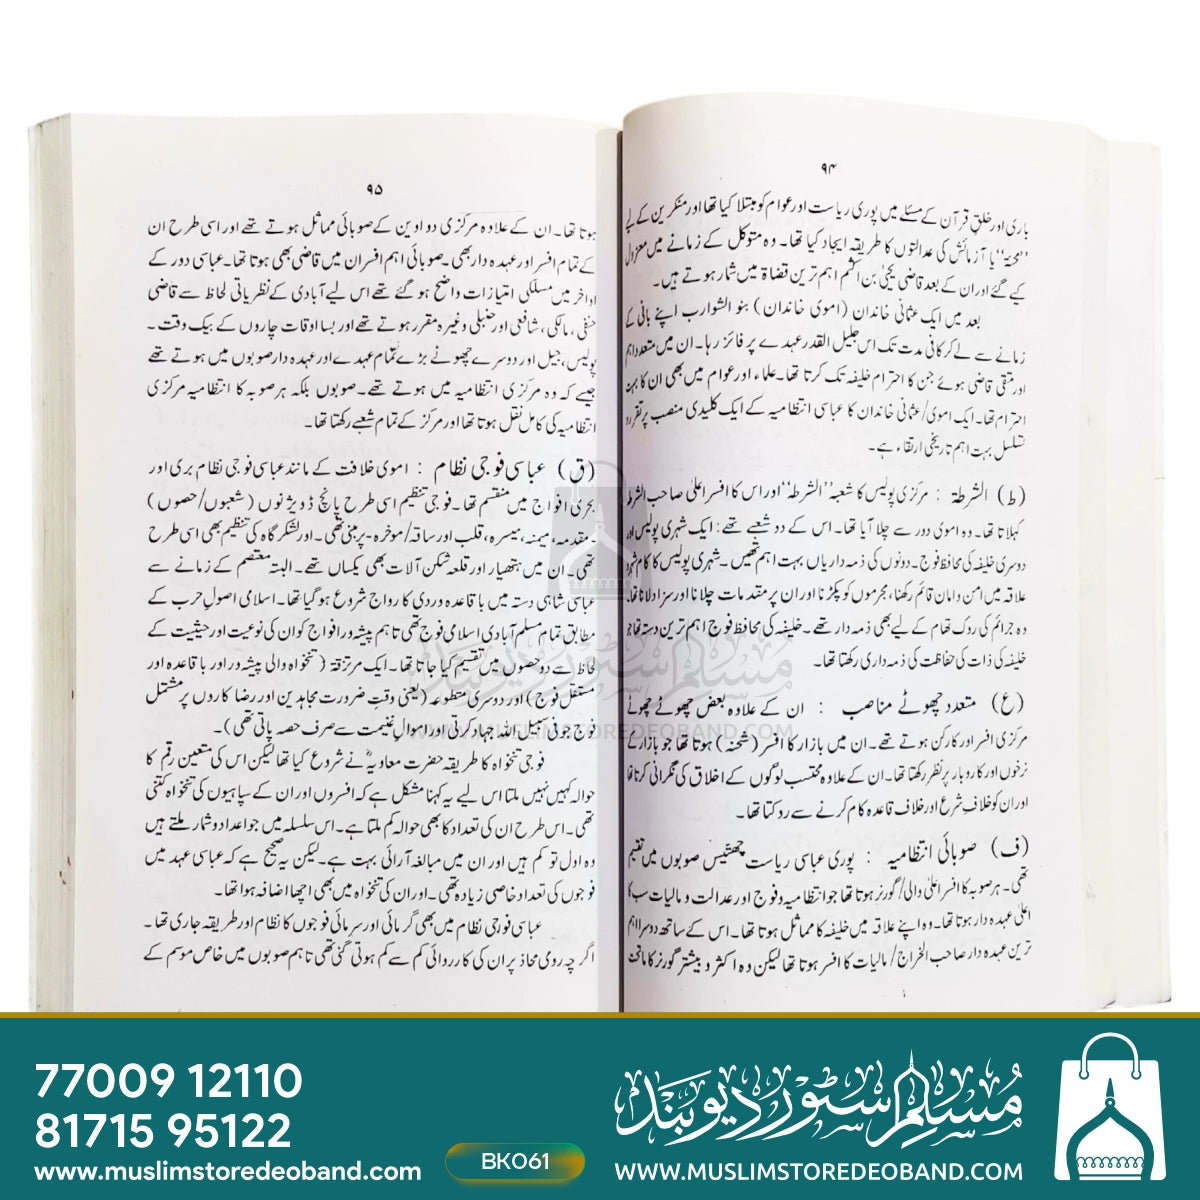 ۹۴
باری اور خلقِ قرآن کے مسئلے میں پوری ریاست اور عوام کو مبتلا کیا تھا اور منکرین کے لیے
’’محنۃ‘‘ یا آزمائش کی عدالتوں کا طریقہ ایجاد کیا تھا۔ وہ متوکل کے زمانے میں معزول
کیے گئے اور ان کے بعد قاضی یحییٰ بن اکثم اہم ترین قضاۃ میں شمار ہوتے ہیں۔
بعد میں ایک عثمانی خاندان (اموی خاندان) بنو الشوارب اپنے بانی کے
زمانے سے لے کر کافی مدت تک اس جلیل القدر عہدے پر فائز رہا۔ ان میں متعدد اہم
اور متقی قاضی ہوئے جن کا احترام خلیفہ تک کرتا تھا۔ علماء اور عوام میں بھی ان کا بہت
احترام تھا۔ ایک اموی/عثمانی خاندان کا عباسی انتظامیہ کے ایک کلیدی منصب پر تقرر و
تسلسل بہت اہم تاریخی ارتقاء ہے۔
(ط) الشرطۃ : مرکزی پولیس کا شعبہ ’’الشرطہ‘‘ اور اس کا افسر اعلیٰ صاحب الشرطہ
کہلاتا تھا۔ وہ اموی دور سے چلا آیا تھا۔ اس کے دو شعبے تھے: ایک شہری پولیس اور
دوسری خلیفہ کی محافظ فوج۔ دونوں کی ذمہ داریاں بہت اہم تھیں۔ شہری پولیس کا کام شہر و
علاقہ میں امن و امان قائم رکھنا، مجرموں کو پکڑنا اور ان پر مقدمات چلانا اور سزا دلانا تھا۔
وہ جرائم کی روک تھام کے لیے بھی ذمہ دار تھے۔ خلیفہ کی محافظ فوج اہم ترین دستہ تھا جو
خلیفہ کی ذات کی حفاظت کی ذمہ داری رکھتا تھا۔
(ع) متعدد چھوٹے مناصب : ان کے علاوہ بعض چھوٹے چھوٹے
مرکزی افسر اور کارکن ہوتے تھے۔ ان میں بازار کا افسر (شحنہ) ہوتا تھا جو بازار کے
نرخوں اور کاروبار پر نظر رکھتا تھا۔ ان کے علاوہ محتسب لوگوں کے اخلاق کی نگرانی کرتا تھا
اور ان کو خلافِ شرع اور خلاف قاعدہ کام کرنے سے روکتا تھا۔
(ف) صوبائی انتظامیہ : پوری عباسی ریاست چھتیس صوبوں میں تقسیم
تھی۔ ہر صوبہ کا افسر اعلیٰ والی/گورنر ہوتا تھا جو انتظامیہ و فوج اور عدالت و مالیات سب کا
اعلیٰ عہدہ دار ہوتا تھا۔ وہ اپنے علاقہ میں خلیفہ کا مماثل ہوتا تھا۔ اس کے ساتھ دوسرا اہم
ترین عہدہ دار صاحب الخراج/مالیات کا افسر ہوتا تھا لیکن وہ اکثر و بیشتر گورنر کا ماتحت
۹۵
ہوتا تھا۔ ان کے علاوہ مرکزی دواوین کے صوبائی مماثل ہوتے تھے اور اسی طرح ان
کے تمام افسر اور عہدہ دار بھی۔ صوبائی اہم افسران میں قاضی بھی ہوتا تھا۔ عباسی دور کے
اواخر میں مسلکی امتیازات واضح ہو گئے تھے اس لیے آبادی کے نظریاتی لحاظ سے قاضی
حنفی، مالکی، شافعی اور حنبلی وغیرہ مقرر ہوتے تھے اور بسا اوقات چاروں کے بیک وقت۔
پولیس، جیل اور دوسرے چھوٹے بڑے تمام عہدے اور عہدہ دار صوبوں میں ہوتے تھے
جیسے کہ وہ مرکزی انتظامیہ میں ہوتے تھے۔ صوبوں بلکہ ہر صوبہ کا انتظامیہ مرکزی
انتظامیہ کی کامل نقل ہوتا تھا اور مرکز کے تمام شعبے رکھتا تھا۔
(ق) عباسی فوجی نظام : اموی خلافت کے مانند عباسی فوجی نظام بری اور
بحری افواج میں منقسم تھا۔ فوجی تنظیم اسی طرح پانچ ڈویژنوں (شعبوں/حصوں)
۔مقدمہ، میمنہ، میسرہ، قلب اور ساقہ/موخرہ۔ پر مبنی تھی۔ اور لشکر گاہ کی تنظیم بھی اسی طرح
تھی۔ ان میں ہتھیار اور قلعہ شکن آلات بھی یکساں تھے۔ البتہ معتصم کے زمانے سے
عباسی شاہی دستہ میں باقاعدہ وردی کا رواج شروع ہو گیا تھا۔ اسلامی اصولِ حرب کے
مطابق تمام مسلم آبادی اسلامی فوج تھی تاہم پیشہ ور افواج کو ان کی نوعیت اور حیثیت کے
لحاظ سے دو حصوں میں تقسیم کیا جاتا تھا۔ ایک مرتزقۃ (تنخواہ والی پیشہ ور اور باقاعدہ اور
مستقل فوج) اور دوسری متطوعہ (یعنی وقتِ ضرورت مجاہدین اور رضا کاروں پر مشتمل
فوج جو فی سبیل اللہ جہاد کرتی اور اموالِ غنیمت سے صرف حصہ پاتی تھی)۔
فوجی تنخواہ کا طریقہ حضرت معاویہؓ نے شروع کیا تھا لیکن اس کی متعین رقم کا
حوالہ کہیں نہیں ملتا اس لیے یہ کہنا مشکل ہے کہ افسروں اور ان کے سپاہیوں کی تنخواہ کتنی
تھی۔ اس طرح ان کی تعداد کا بھی حوالہ کم ملتا ہے۔ اس سلسلہ میں جو اعداد و شمار ملتے ہیں
وہ اول تو کم ہیں اور ان میں مبالغہ آرائی بہت ہے۔ لیکن یہ صحیح ہے کہ عباسی عہد میں
فوجوں کی تعداد خاصی زیادہ تھی۔ اور ان کی تنخواہ میں بھی اچھا اضافہ ہوا تھا۔
عباسی فوجی نظام میں بھی گرمائی اور سرمائی فوجوں کا نظام اور طریقہ جاری تھا۔
اگرچہ رومی محاذ پر ان کی کارروائی کم سے کم ہوتی گئی تھی تاہم صوبوں میں خاص موسم کے
مسلم سٹور دیوبند
WWW.MUSLIMSTOREDEOBAND.COM
77009 12110
81715 95122
www.muslimstoredeoband.com
BK061
مسلم سٹور دیوبند
WWW.MUSLIMSTOREDEOBAND.COM